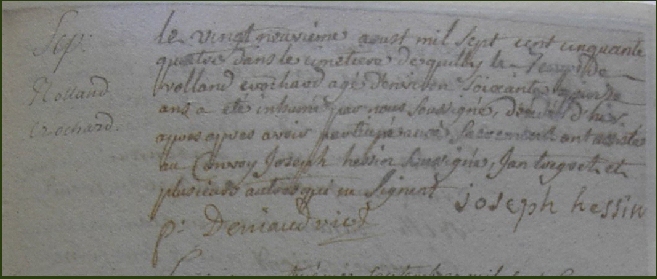 Sep:
Rolland
crochard.
le vingt neuvième aoust mil sept cent cinquante
quatre dans le cimetière de quilly le corps de
rolland crochard agé denviron soixante quinze
ans a eté inhumé par nous soussigné, décédé d'hier
apres avoir participé aux sacrement ont assisté
au Convoy Joseph hessin soussigné, Jan et
plusieurs autres qui ne signent joseph hessin
p: Deniaud vic